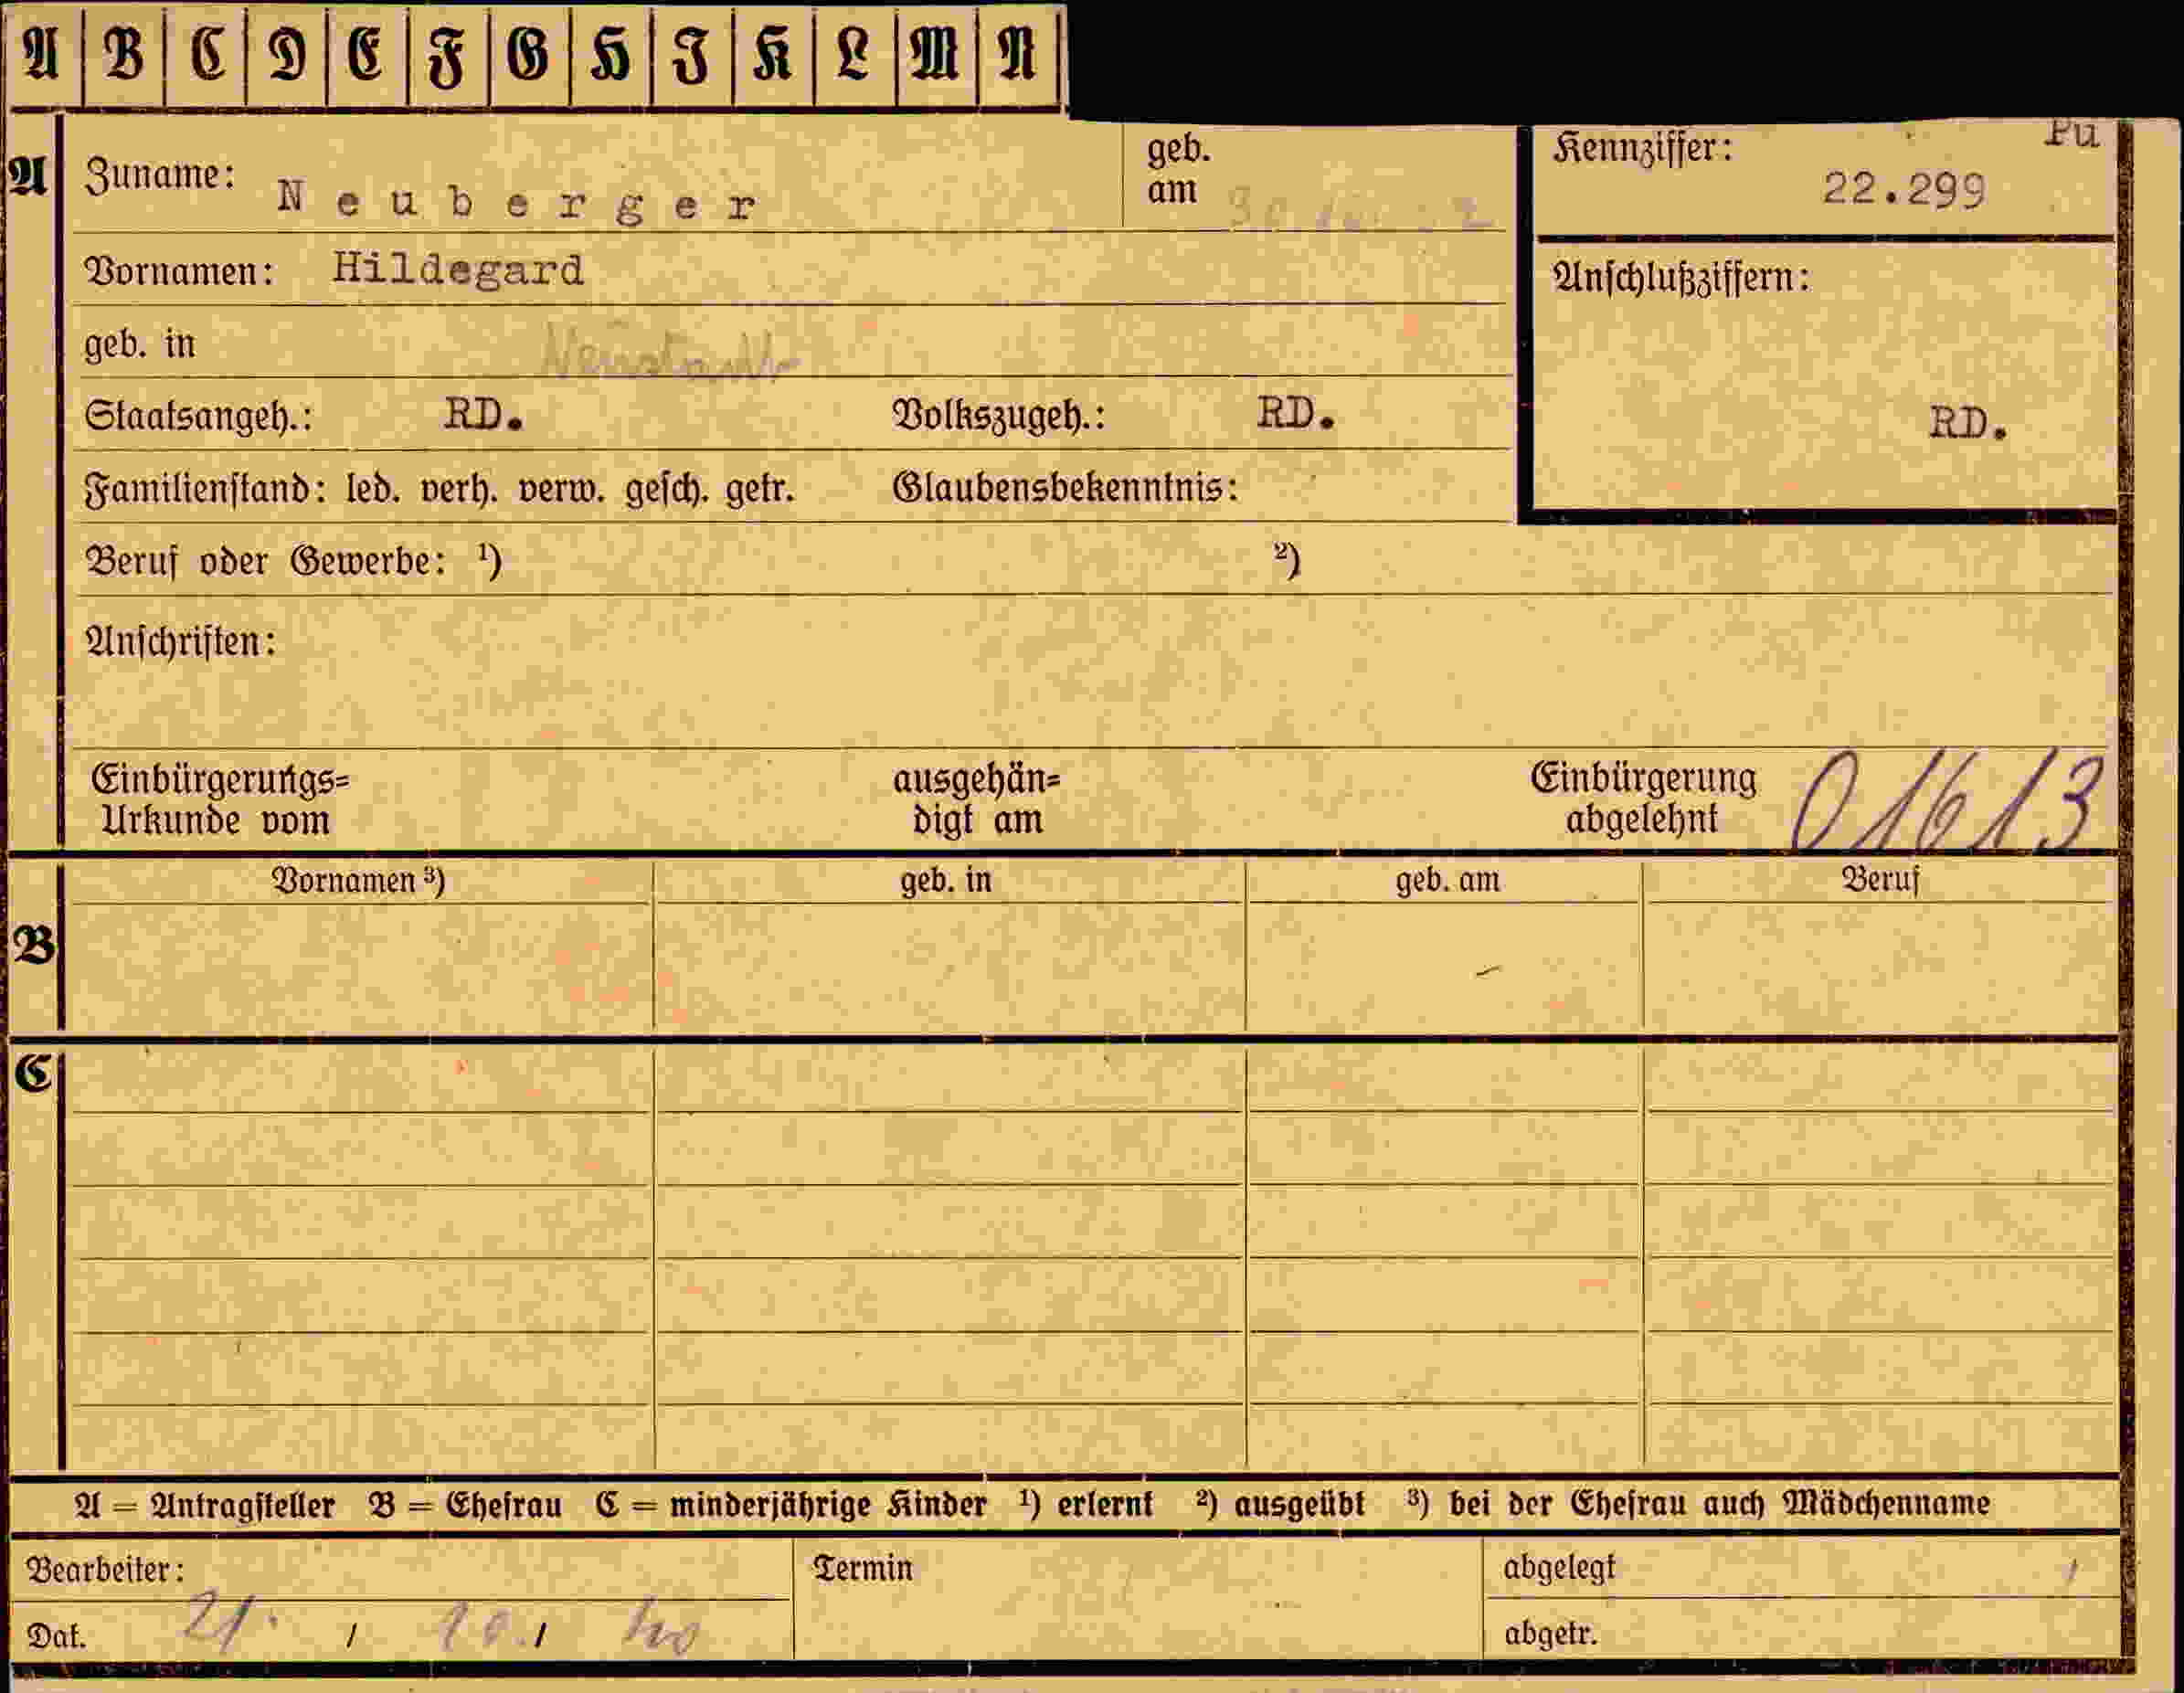 A B C D E F G H I K L M N
A Zuname: Neuberger geb. am
Kennziffer: Pu
22.299
Vornamen: Hildegard
Anschlußziffern:
geb. in
Staatsangeh.: RD. Volkszugeh.: RD.
RD.
Familienstand: led. verh. verw. gesch. getr. Glaubensbekenntnis:
Beruf oder Gewerbe: ¹) ²)
Anschriften:
Einbürgerungs= ausgehän= Einbürgerung
Urkunde vom digt am abgelehnt 01613
Vornamen ³) geb. in geb. am Beruf
B
C
A = Antragsteller B = Ehefrau C = minderjährige Kinder ¹) erlernt ²) ausgeübt ³) bei der Ehefrau auch Mädchenname
Bearbeiter: Termin abgelegt
Dat. 21. / 10. / 40 abgetr.